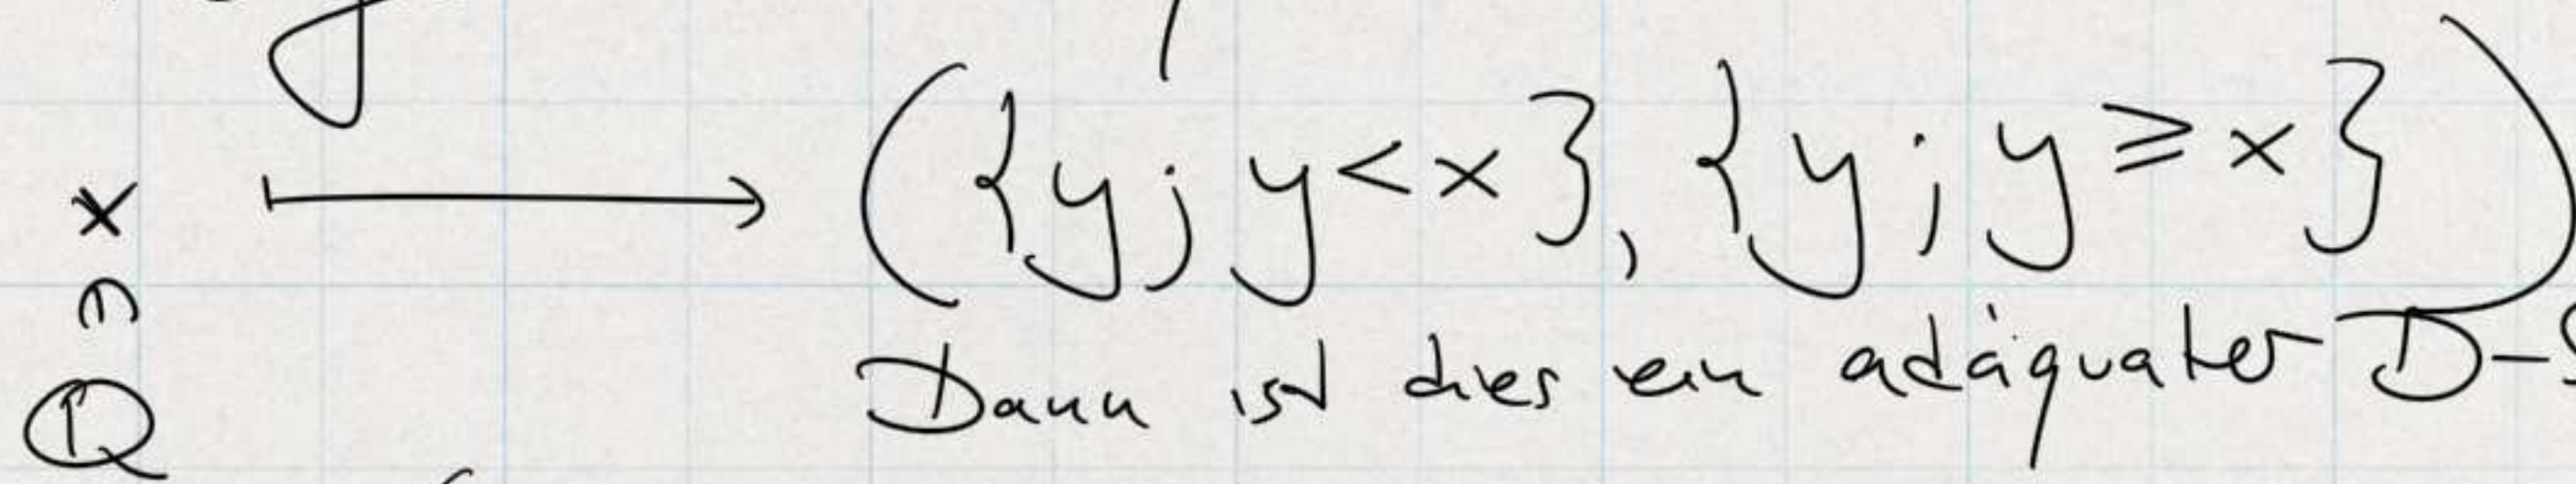 x ↦ ({y; y<x}, {y; y≥x})
∩
ℚ
Dann ist dies ein adäquater D-